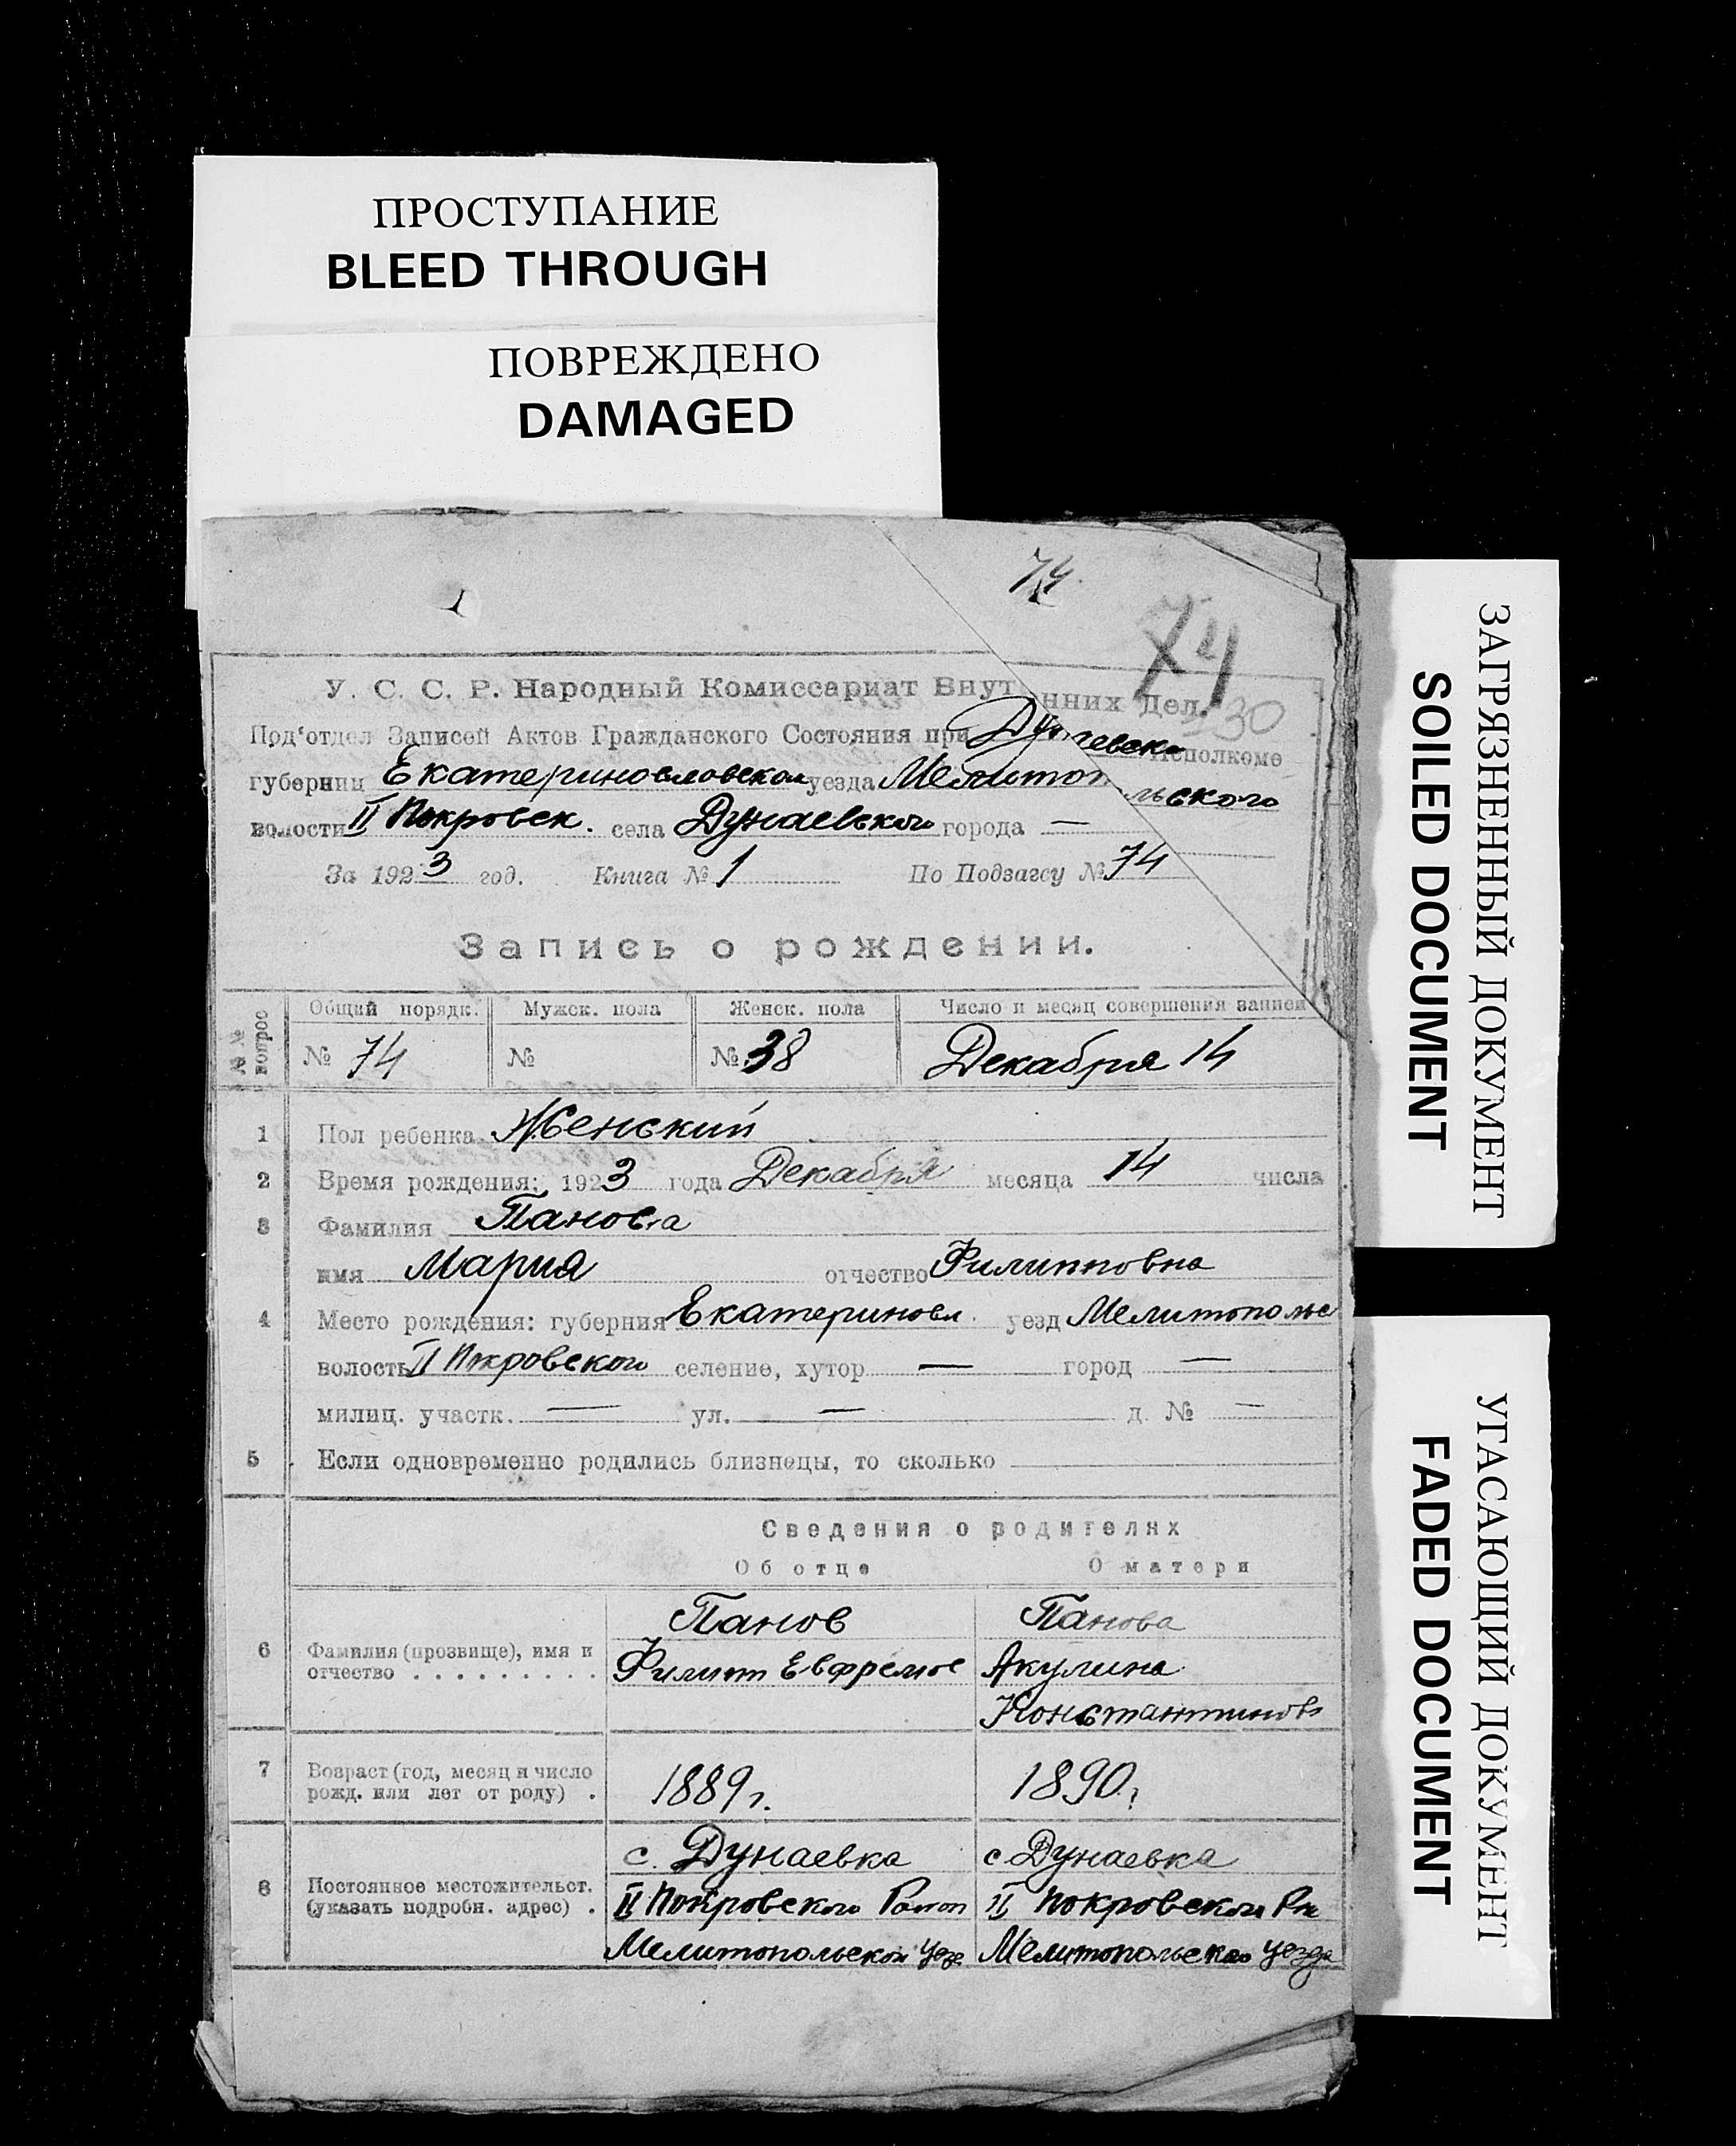 ПРОСТУПАНИЕ
BLEED THROUGH
ПОВРЕЖДЕНО
DAMAGED
74
74
30
У. С. С. Р. Народный Комиссариат Внут нних Дел.
Под'отдел Записей Актов Гражданского Состояния при Исполкоме
губернии Екатеринославской уезда Мелитопольского
волости II Покровск. села Дунаевского города —
За 1923 год. Книга № 1 По Подзагсу № 74
Запись о рождении.
№ № вопрос
Общий порядк. Мужск. пола Женск. пола Число и месяц совершения записи
№ 74 № № 38 Декабря 14
1 Пол ребенка Женский
2 Время рождения: 1923 года Декабря месяца 14 числа
3 Фамилия Панова
имя Мария отчество Филипповна
4 Место рождения: губерния Екатериносл. уезд Мелитопольс
волость II Покровского селение, хутор — город —
милиц. участк. — ул. — д. № —
5 Если одновременно родились близнецы, то сколько
Сведения о родителях
Об отце О матери
6 Фамилия (прозвище), имя и
отчество . . . . . . . . .
Панов
Филипп Евфремов
Панова
Акулина
Константинов
7 Возраст (год, месяц и число
рожд. или лет от роду) .
1889 г.
1890 г
8 Постоянное местожительст.
(указать подробн. адрес) .
с. Дунаевка
II Покровского Район
Мелитопольской Уезд
с Дунаевка
II Покровского Рн
Мелитопольского Уезда
ЗАГРЯЗНЕННЫЙ ДОКУМЕНТ
SOILED DOCUMENT
УГАСАЮЩИЙ ДОКУМЕНТ
FADED DOCUMENT